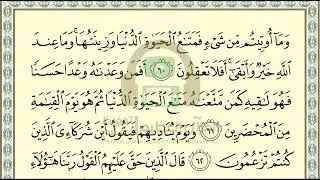 وَمَآ أُوتِيتُم مِّن شَىْءٍ فَمَتَٰعُ ٱلْحَيَوٰةِ ٱلدُّنْيَا وَزِينَتُهَا وَمَا عِندَ
ٱللَّهِ خَيْرٌ وَأَبْقَىٰٓ أَفَلَا تَعْقِلُونَ ٦٠ أَفَمَن وَعَدْنَٰهُ وَعْدًا حَسَنًا
فَهُوَ لَٰقِيهِ كَمَن مَّتَّعْنَٰهُ مَتَٰعَ ٱلْحَيَوٰةِ ٱلدُّنْيَا ثُمَّ هُوَ يَوْمَ ٱلْقِيَٰمَةِ
مِنَ ٱلْمُحْضَرِينَ ٦١ وَيَوْمَ يُنَادِيهِمْ فَيَقُولُ أَيْنَ شُرَكَآءِىَ ٱلَّذِينَ
كُنتُمْ تَزْعُمُونَ ٦٢ قَالَ ٱلَّذِينَ حَقَّ عَلَيْهِمُ ٱلْقَوْلُ رَبَّنَا هَٰٓؤُلَآءِ